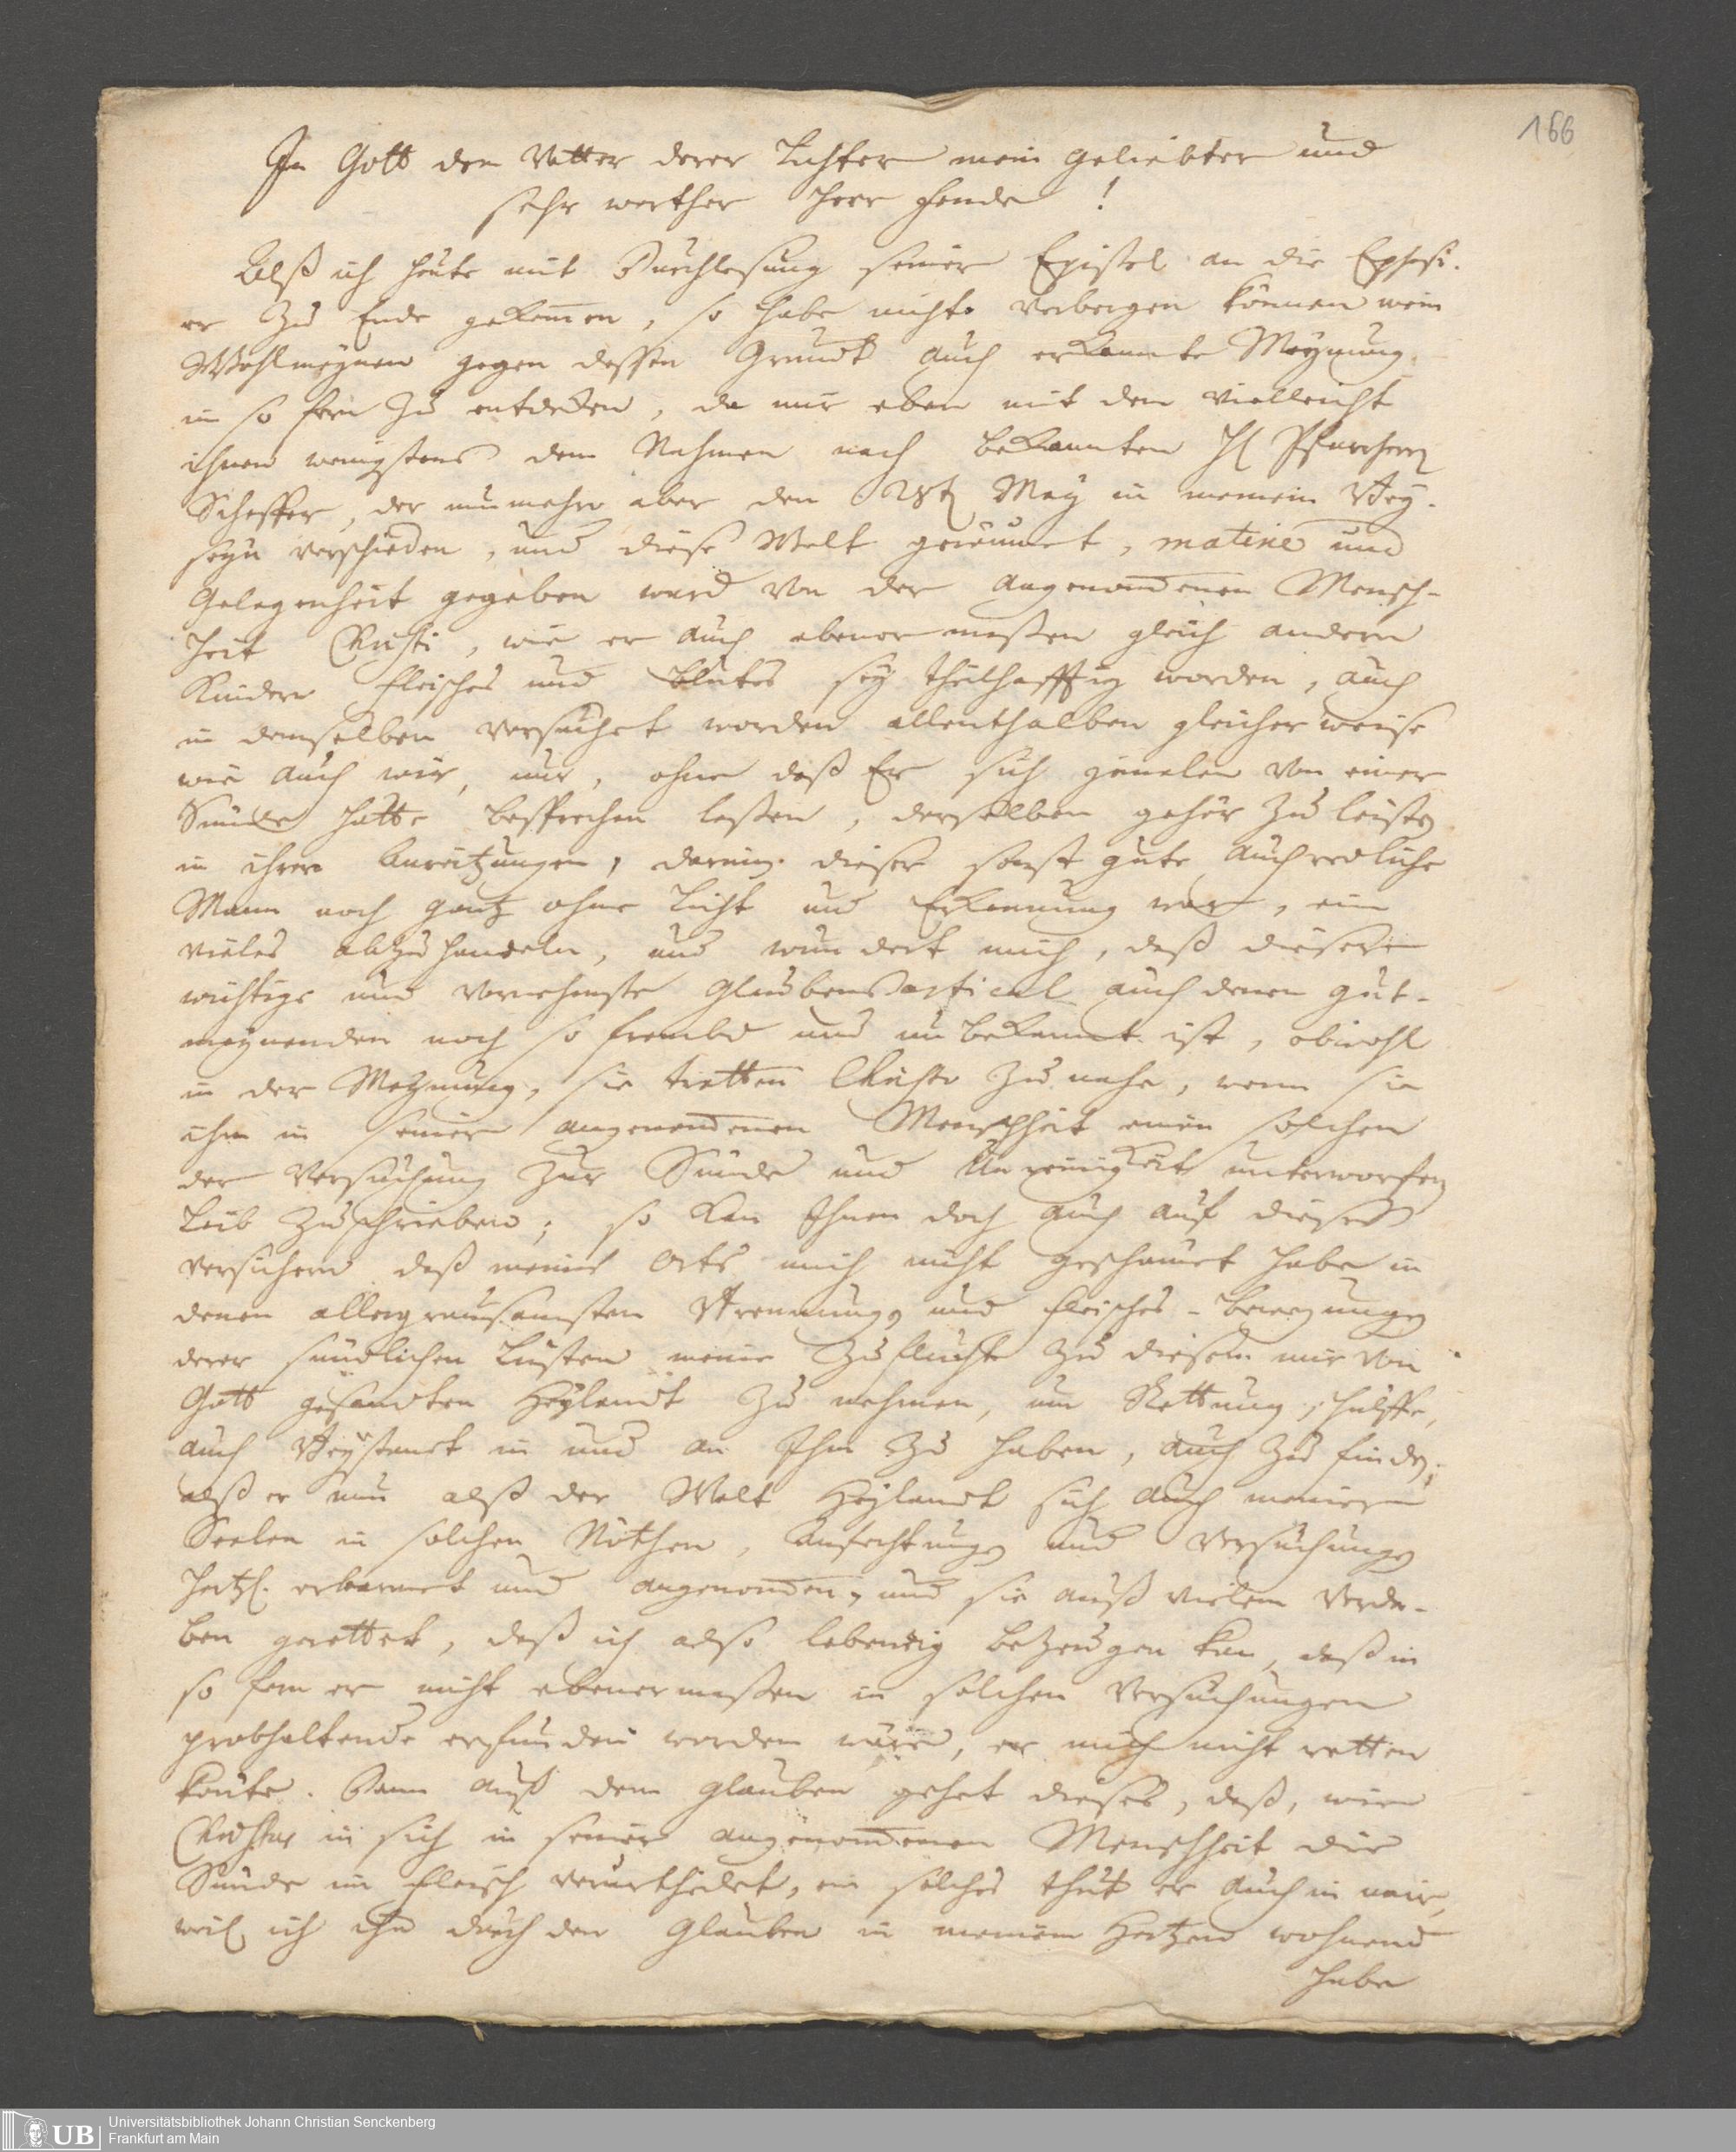 166
In Gott dem Vatter derer Lichter mein geliebter und
sehr werther Herr Fende!
Alß ich heute mit Durchlesung seiner Epistel an die Ephesi-
er zu Ende gekommen, so habe nicht verbergen können mein
Wohlmeynen gegen dessen Grundt auch erkannte Meynung
in so fern zu entdecken, da mir eben mit dem vielleicht
ihnen wenigstens dem Nahmen nach bekannten H. Pfarrherrn
Scheffer, der nunmehro aber den 28t May in meinem Bey-
seyn verschieden, und diese Welt geräumet, materie und
Gelegenheit gegeben ward von der angenommenen Mensch-
heit Christi, wie er auch ebener maßen gleich andern
Kindern Fleisches und Blutes sey theilhafftig worden, auch
in demselben versuchet worden allenthalben gleicher weise
wie auch wir, nur, ohne daß Er sich jemalen von einer
Sünde hätte besprechen lassen, derselben gehör zu leisten
in ihren Anreitzungen, darinn dieser sonst gute auch redliche
Mann noch gantz ohne Licht und Erkennung war, ein
vieles abzuhandeln, und wundert mich, daß dieser
wichtige und vornehmste Glaubensarticul auch denen gut-
meynenden noch so frembd und unbekannt ist, obwohl
in der Meynung, sie tretten Christo zu nahe, wenn sie
ihm in seiner angenommenen Menschheit einen solchen
der Versuchung zur Sünde und Unreinigkeit unterworfen
Leib zuschrieben; so kan Ihnen doch auch auf dieses
versichern daß meines Orts mich nicht geschämet habe in
denen allergrausamsten Brennungen und Fleisches-bewegungen
derer sündlichen Lüsten meine Zuflucht zu diesem mir von
Gott gesandten Heylandt zu nehmen, um Rettung, Hülffe,
auch Beystandt in und an Ihm zu haben, auch zu finden;
alß er nun alß der Welt Heylandt sich auch meiner
Seelen in solchen Nöthen, Anfechtungen und Versuchungen
hertzl. erbarmet und angenommen, und sie auß vielem Verder-
ben gerettet, daß ich also lebendig bezeugen kan, daß in
so fern er nicht ebenermaßen in solchen Versuchungen
probhaltende erfunden worden wäre, er mich nicht retten
könte. Dann auß dem Glauben gehet dieses, daß, wie
Christus in sich in seiner angenommenen Menschheit die
Sünde im Fleisch verurtheilet, ein solches thut er auch in mir,
weil ich ihn durch den Glauben in meinem Hertzen wohnend
habe
UB
Universitätsbibliothek Johann Christian Senckenberg
Frankfurt am Main